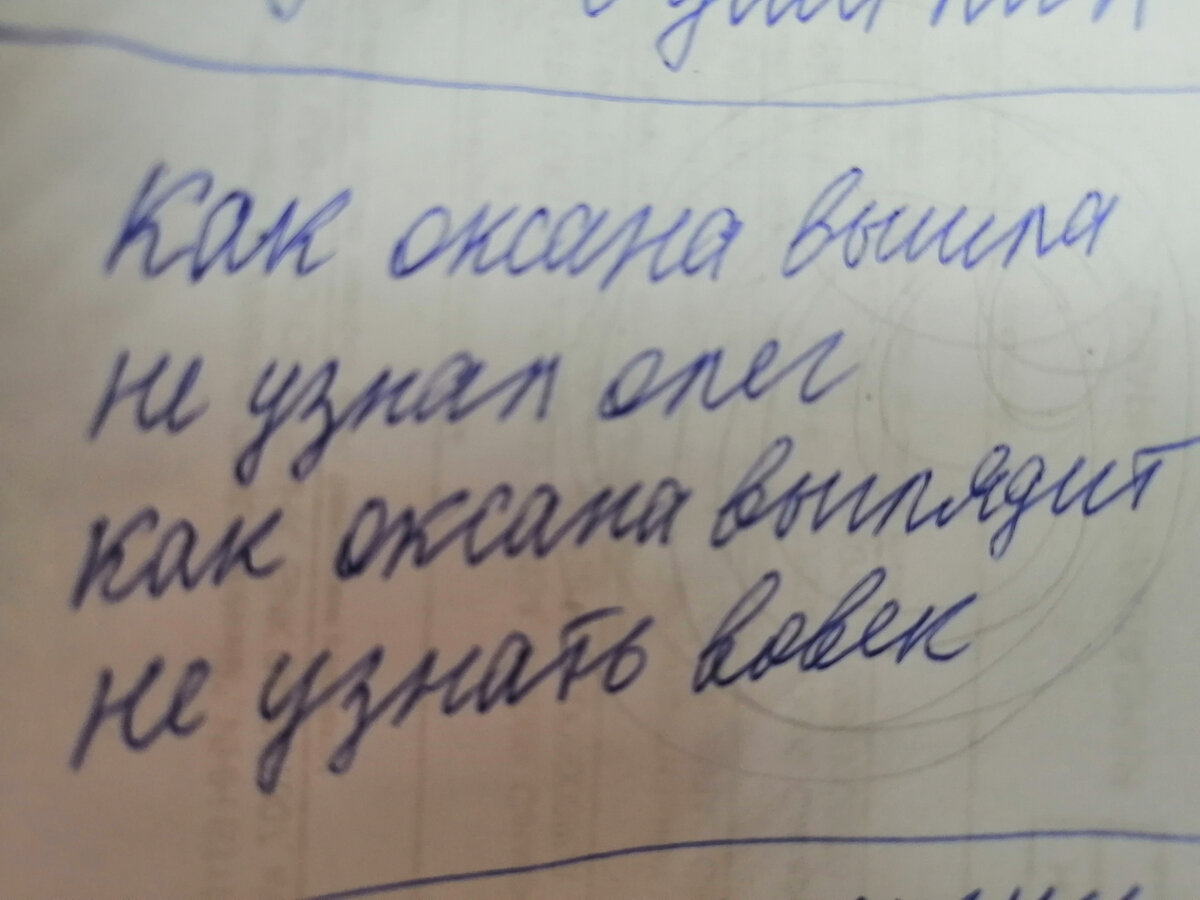 Как оксана вышла
не узнал олег
как оксана выглядит
не узнать вовек